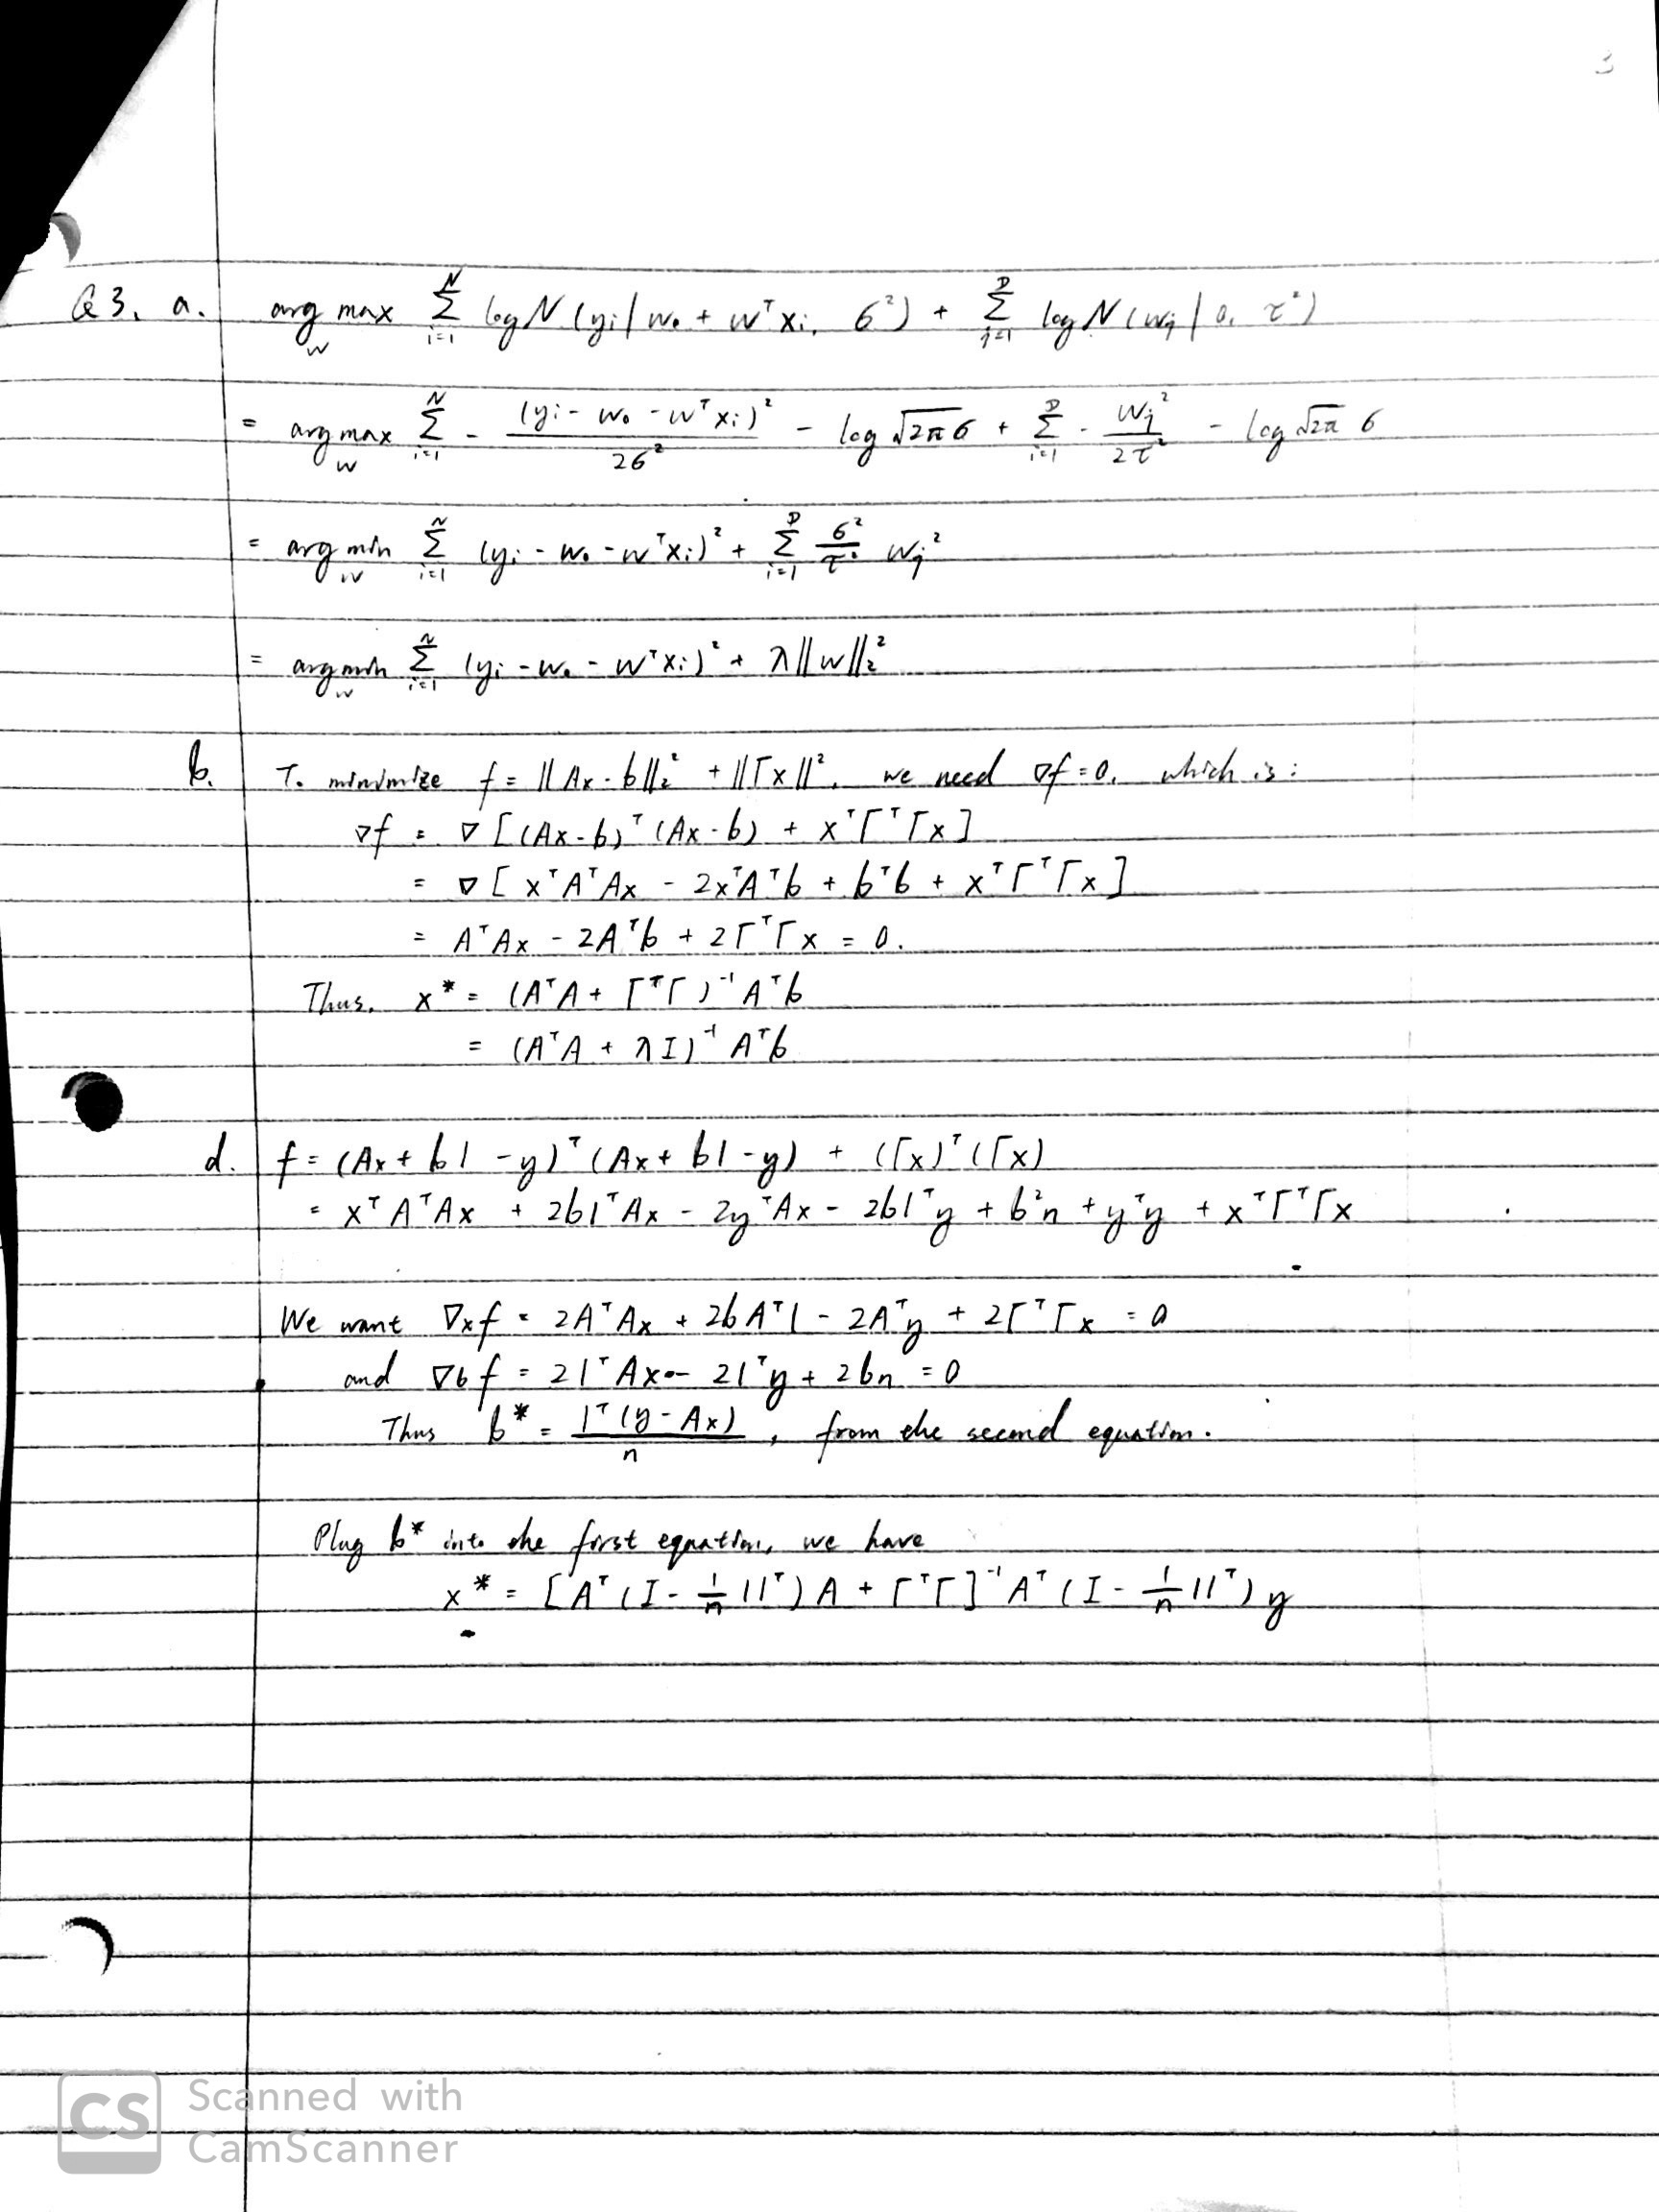 3
Q3. a. arg max_w Σ_{i=1}^N log N(yi | w₀ + wᵀxi, σ²) + Σ_{j=1}^D log N(wj | 0, τ²)
= arg max_w Σ_{i=1}^N - (yi - w₀ - wᵀxi)² / 2σ² - log √2π σ + Σ_{i=1}^D - wj² / 2τ² - log √2π σ
= arg min_w Σ_{i=1}^N (yi - w₀ - wᵀxi)² + Σ_{i=1}^D σ²/τ² wj²
= arg min_w Σ_{i=1}^N (yi - w₀ - wᵀxi)² + λ||w||₂²
b. To minimize f = ||Ax - b||₂² + ||Γx||², we need ∇f = 0, which is:
∇f = ∇[(Ax-b)ᵀ(Ax-b) + xᵀΓᵀΓx]
= ∇[xᵀAᵀAx - 2xᵀAᵀb + bᵀb + xᵀΓᵀΓx]
= AᵀAx - 2Aᵀb + 2ΓᵀΓx = 0.
Thus, x* = (AᵀA + ΓᵀΓ)⁻¹Aᵀb
= (AᵀA + λI)⁻¹Aᵀb
d. f = (Ax + b1 - y)ᵀ(Ax + b1 - y) + (Γx)ᵀ(Γx)
= xᵀAᵀAx + 2b1ᵀAx - 2yᵀAx - 2b1ᵀy + b²n + yᵀy + xᵀΓᵀΓx
We want ∇xf = 2AᵀAx + 2bAᵀ1 - 2Aᵀy + 2ΓᵀΓx = 0
and ∇bf = 21ᵀAx - 21ᵀy + 2bn = 0
Thus b* = 1ᵀ(y - Ax) / n, from the second equation.
Plug b* into the first equation, we have
x* = [Aᵀ(I - 1/n 11ᵀ)A + ΓᵀΓ]⁻¹Aᵀ(I - 1/n 11ᵀ)y
CS Scanned with
CamScanner